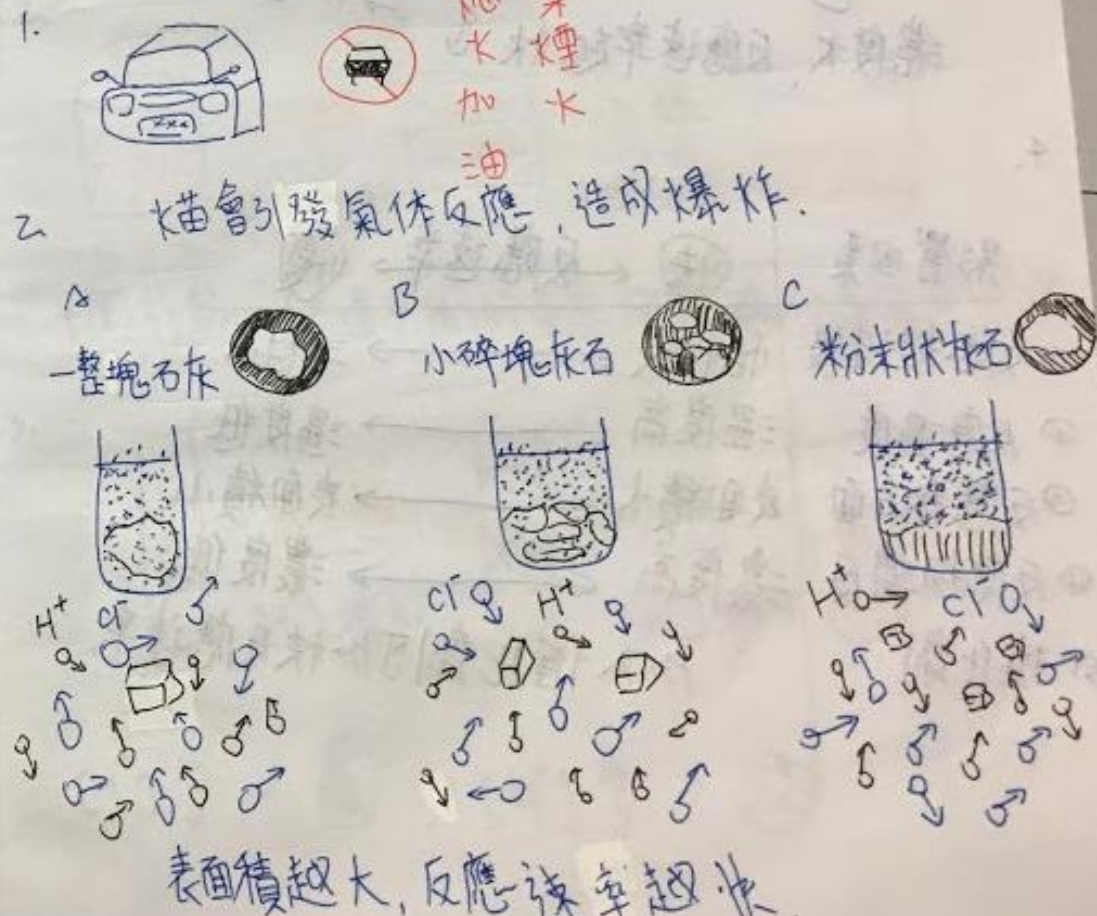 1.
禁煙火
熄火加油
xxx
2
火苗會引發氣体反應，造成爆炸.
A
一整塊石灰
B
小碎塊灰石
C
粉末狀灰石
H⁺ Cl⁻
Cl⁻ H⁺
H⁺ Cl⁻
表面積越大，反應速率越快.